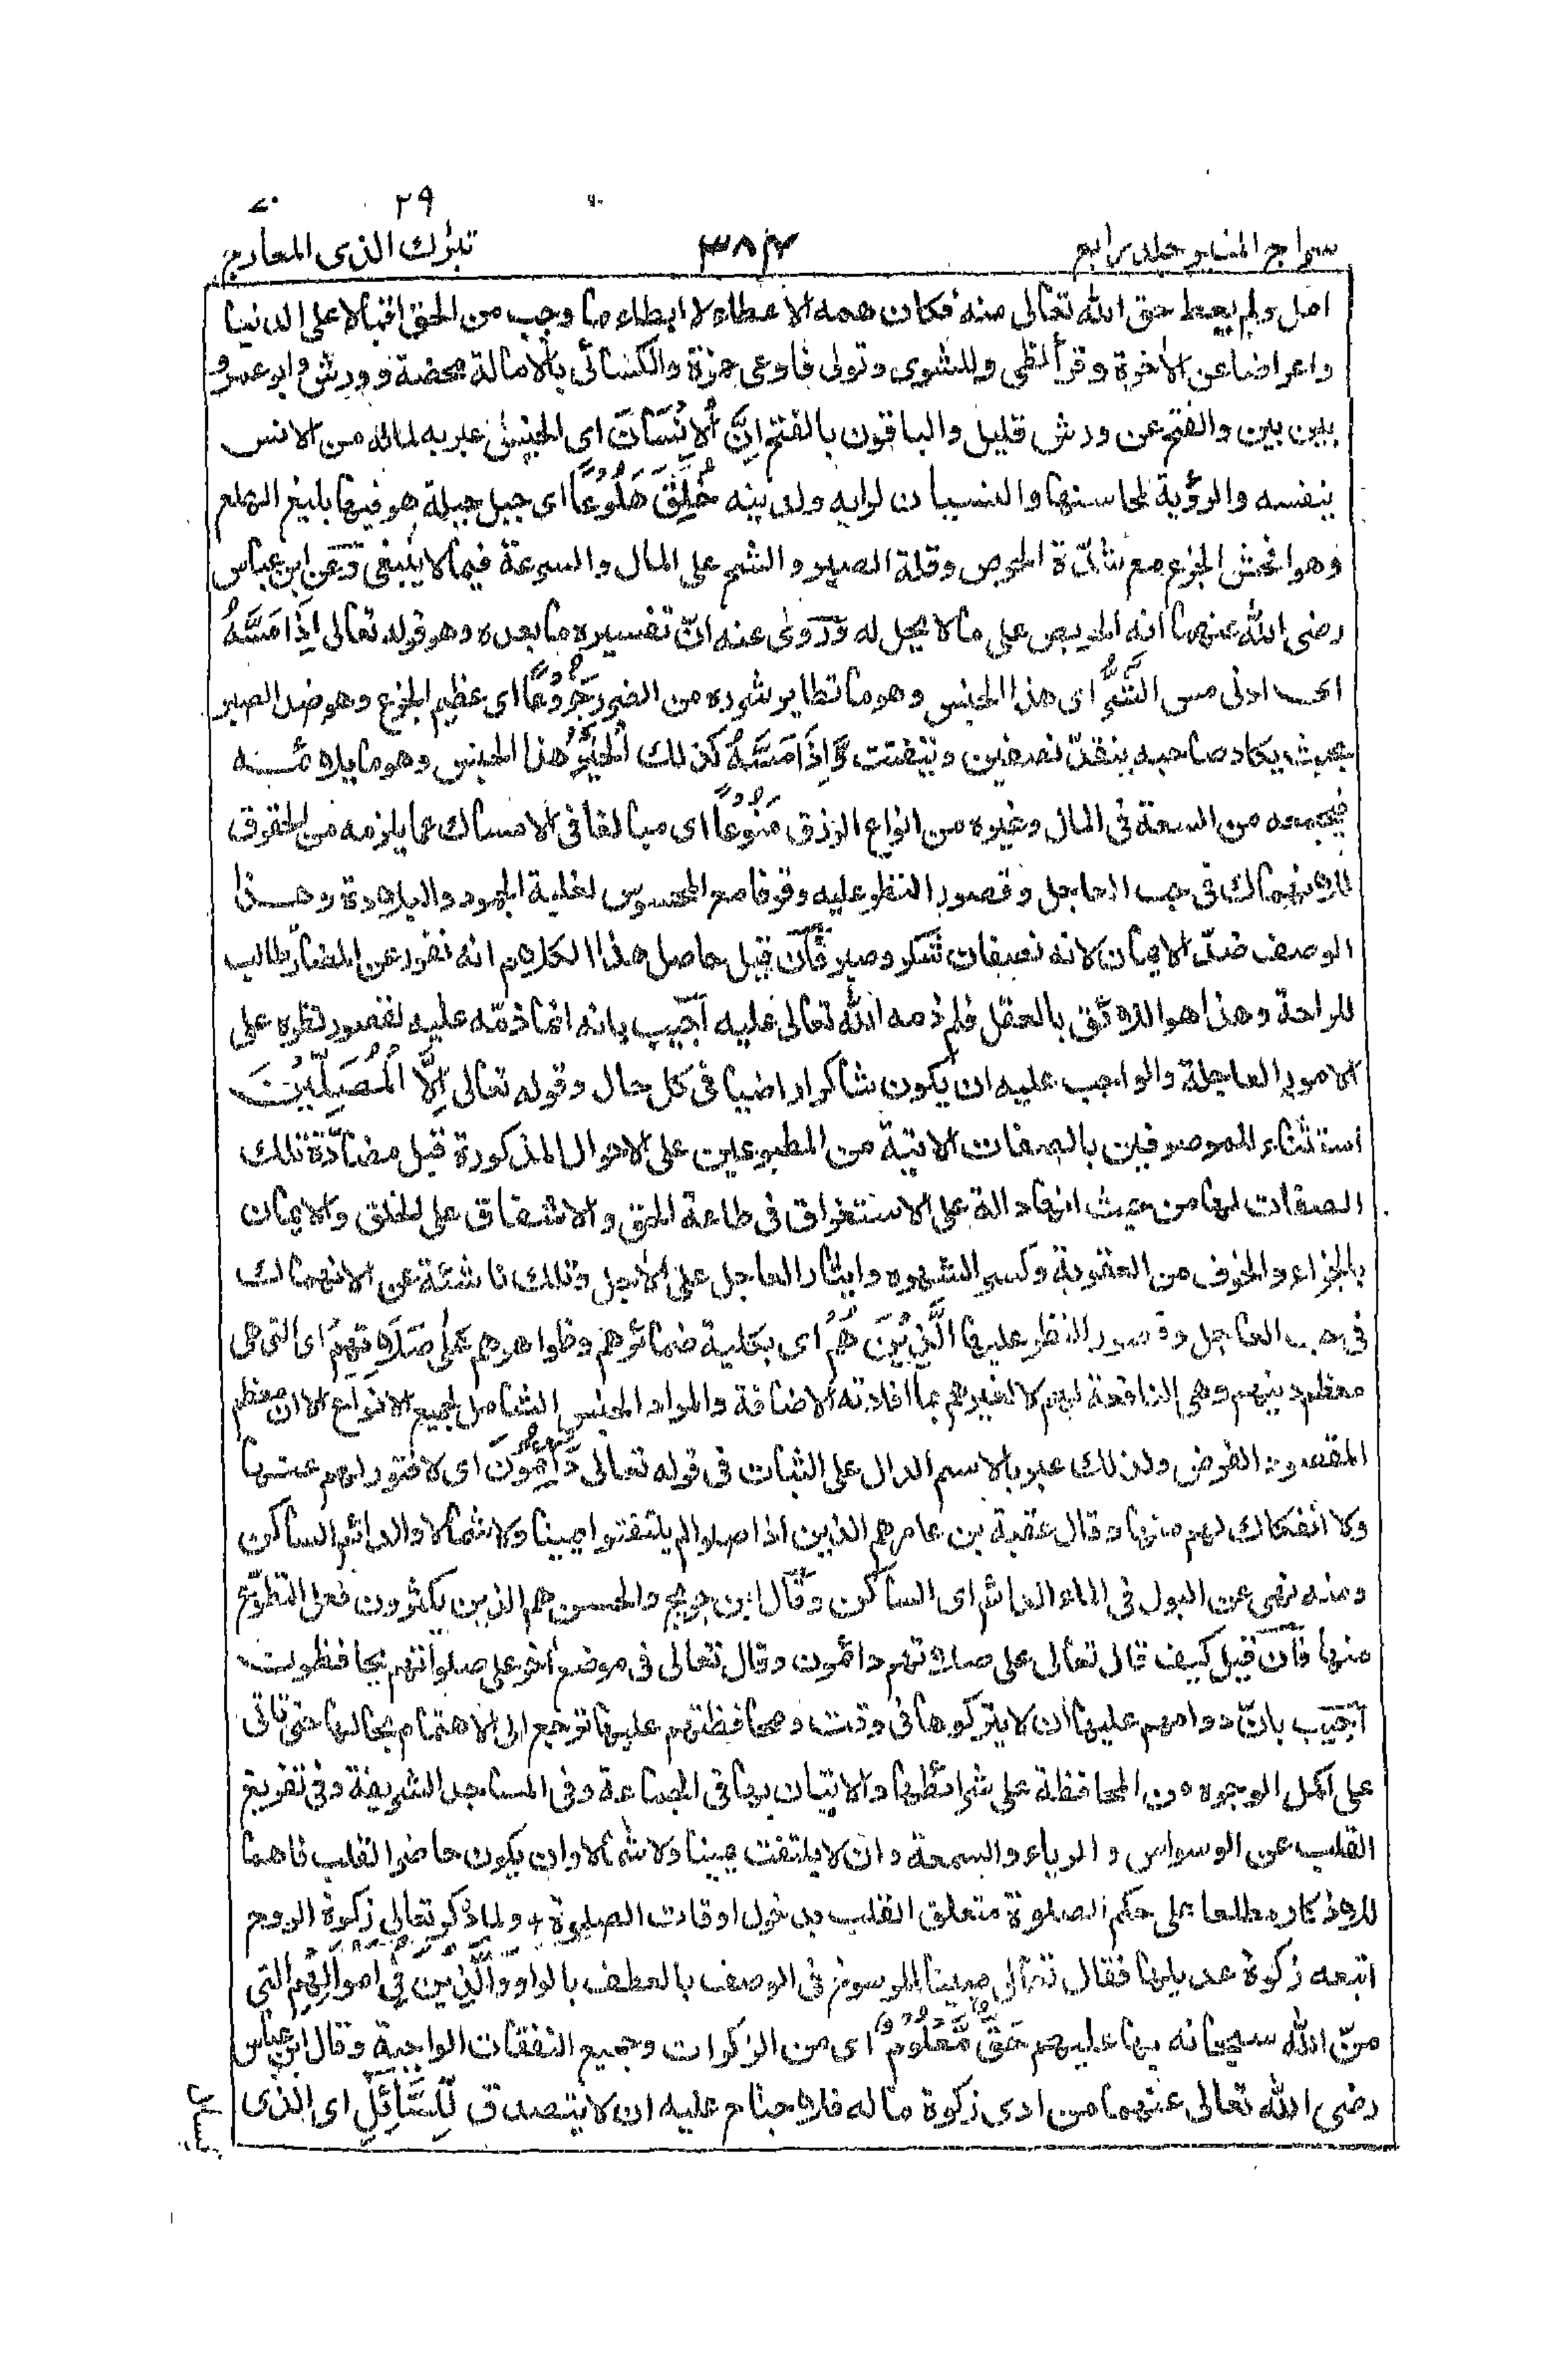 ٢٩
سراج المنير جلد رابع
٣٨٤
تبٰرك الذى المعارج
امل ولم يعط حق الله تعالى منه فكان همه الاعطاء لا ابطاء ما وجب من الحق اقبالا على الدنيا
واعراضا عن الاخرة وقرأ لظى وللشوى وتولى فاوعى حمزة والكسائى بالامالة محضة وورش وابو عمرو
بين بين والفتح عن ورش قليل والباقون بالفتح اِنَّ الْاِنْسَانَ اى الجنس عبر به لماله من الانس
بنفسه والرؤية لمحاسنها والنسيان لربه ولدينه خُلِقَ هَلُوْعًا اى جبل جبلة هو فيها بليغ الهلع
وهو افحش الجزع مع شدّة الحرص وقلة الصبر والشح على المال والسرعة فيما لا ينبغى وعن ابن عباس
رضى الله عنهما انه الحريص على ما لا يحل له وروى عنه انّ تفسيره ما بعده وهو قوله تعالى اِذَا مَسَّهُ
اى ادنى مس الشَّرُّ اى هذا الجنس وهو ما تطاير شرره من الضر جَزُوْعًا اى عظيم الجزع وهو ضد الصبر
بحيث يكاد صاحبه ينقدّ نصفين ويتفتت وَّاِذَا مَسَّهُ كذلك الْخَيْرُ هذا الجنس وهو ما يلائمه
فيجمعه من السعة فى المال وغيره من انواع الرزق مَنُوْعًا اى مبالغا فى الامساك عما يلزمه من الحقوق
للانهماك فى حب العاجل وقصور النظر عليه وقوفا مع المحسوس لغلبة الجمود والبلادة وهذا
الوصف ضدّ الايمان لانه نصفان شكر وصبر فان قيل حاصل هذا الكلام انه نفور عن المضارّ طالب
للراحة وهذا هو اللائق بالعقل فلم ذمه الله تعالى عليه اجيب بانه انما ذمّه عليه لقصور نظره على
الامور العاجلة والواجب عليه ان يكون شاكرا راضيا فى كل حال وقوله تعالى اِلَّا الْمُصَلِّيْنَ
استثناء للموصوفين بالصفات الاتية من المطبوعين على الاحوال المذكورة قبل مضادّة تلك
الصفات لها من حيث انها دالة على الاستغراق فى طاعة الحق والاشفاق على الخلق والايمان
بالجزاء والخوف من العقوبة وكسر الشهوه وايثار العاجل على الأجل وتلك ناشئة عن الانهماك
فى حب العاجل وقصور النظر عليها الَّذِيْنَ هُمْ اى بكلية ضمائرهم وظواهرهم عَلٰى صَلَاتِهِمْ اى التى هى
معظم دينهم وهى النافعة لهم لا لغيرهم بما افادته الاضافة والمراد الجنس الشامل لجميع الانواع الا ان معظم
المقصود الفرض ولذلك عبر بالاسم الدال على الثبات فى قوله تعالى دَآئِمُوْنَ اى لا فتور لهم عنها
ولا انفكاك لهم منها وقال عقبة بن عامر هم الذين اذا صلوا لم يلتفتوا يمينا ولا شمالا والدائم الساكن
ومنه نهى عن البول فى الماء الدائم اى الساكن وقال ابن جريج والحسن هم الذين يكثرون فعل التطوّع
منها فان قيل كيف قال تعالى على صلاتهم دائمون وقال تعالى فى موضع اخر على صلواتهم يحافظون
اجيب بانّ دوامهم عليها ان لا يتركوها فى وقت ومحافظتهم عليها ترجع الى الاهتمام بحالها حتى تاتى
على اكمل الوجوه من المحافظة على شرائطها والاتيان بها فى الجماعة وفى المساجد الشريفة وفى تفريغ
القلب عن الوسواس والرياء والسمعة وان لا يلتفت يمينا ولا شمالا وان يكون حاضر القلب فاهما
للاذكار مطلعا على حكم الصلوة متعلق القلب بدخول اوقات الصلوة + ولما ذكر تعالى زكوة الروح
اتبعه زكوة عديلها فقال تعالى مبينا للرسوخ فى الوصف بالعطف بالواو وَالَّذِيْنَ فِيْ اَمْوَالِهِمْ التى
منّ الله سبحانه بها عليهم حَقٌّ مَّعْلُوْمٌ اى من الزكوات وجميع النفقات الواجبة وقال ابن عباس
رضى الله تعالى عنهما من ادى زكوة ماله فلا جناح عليه ان لا يتصدق لِّلسَّآئِلِ اى الذى